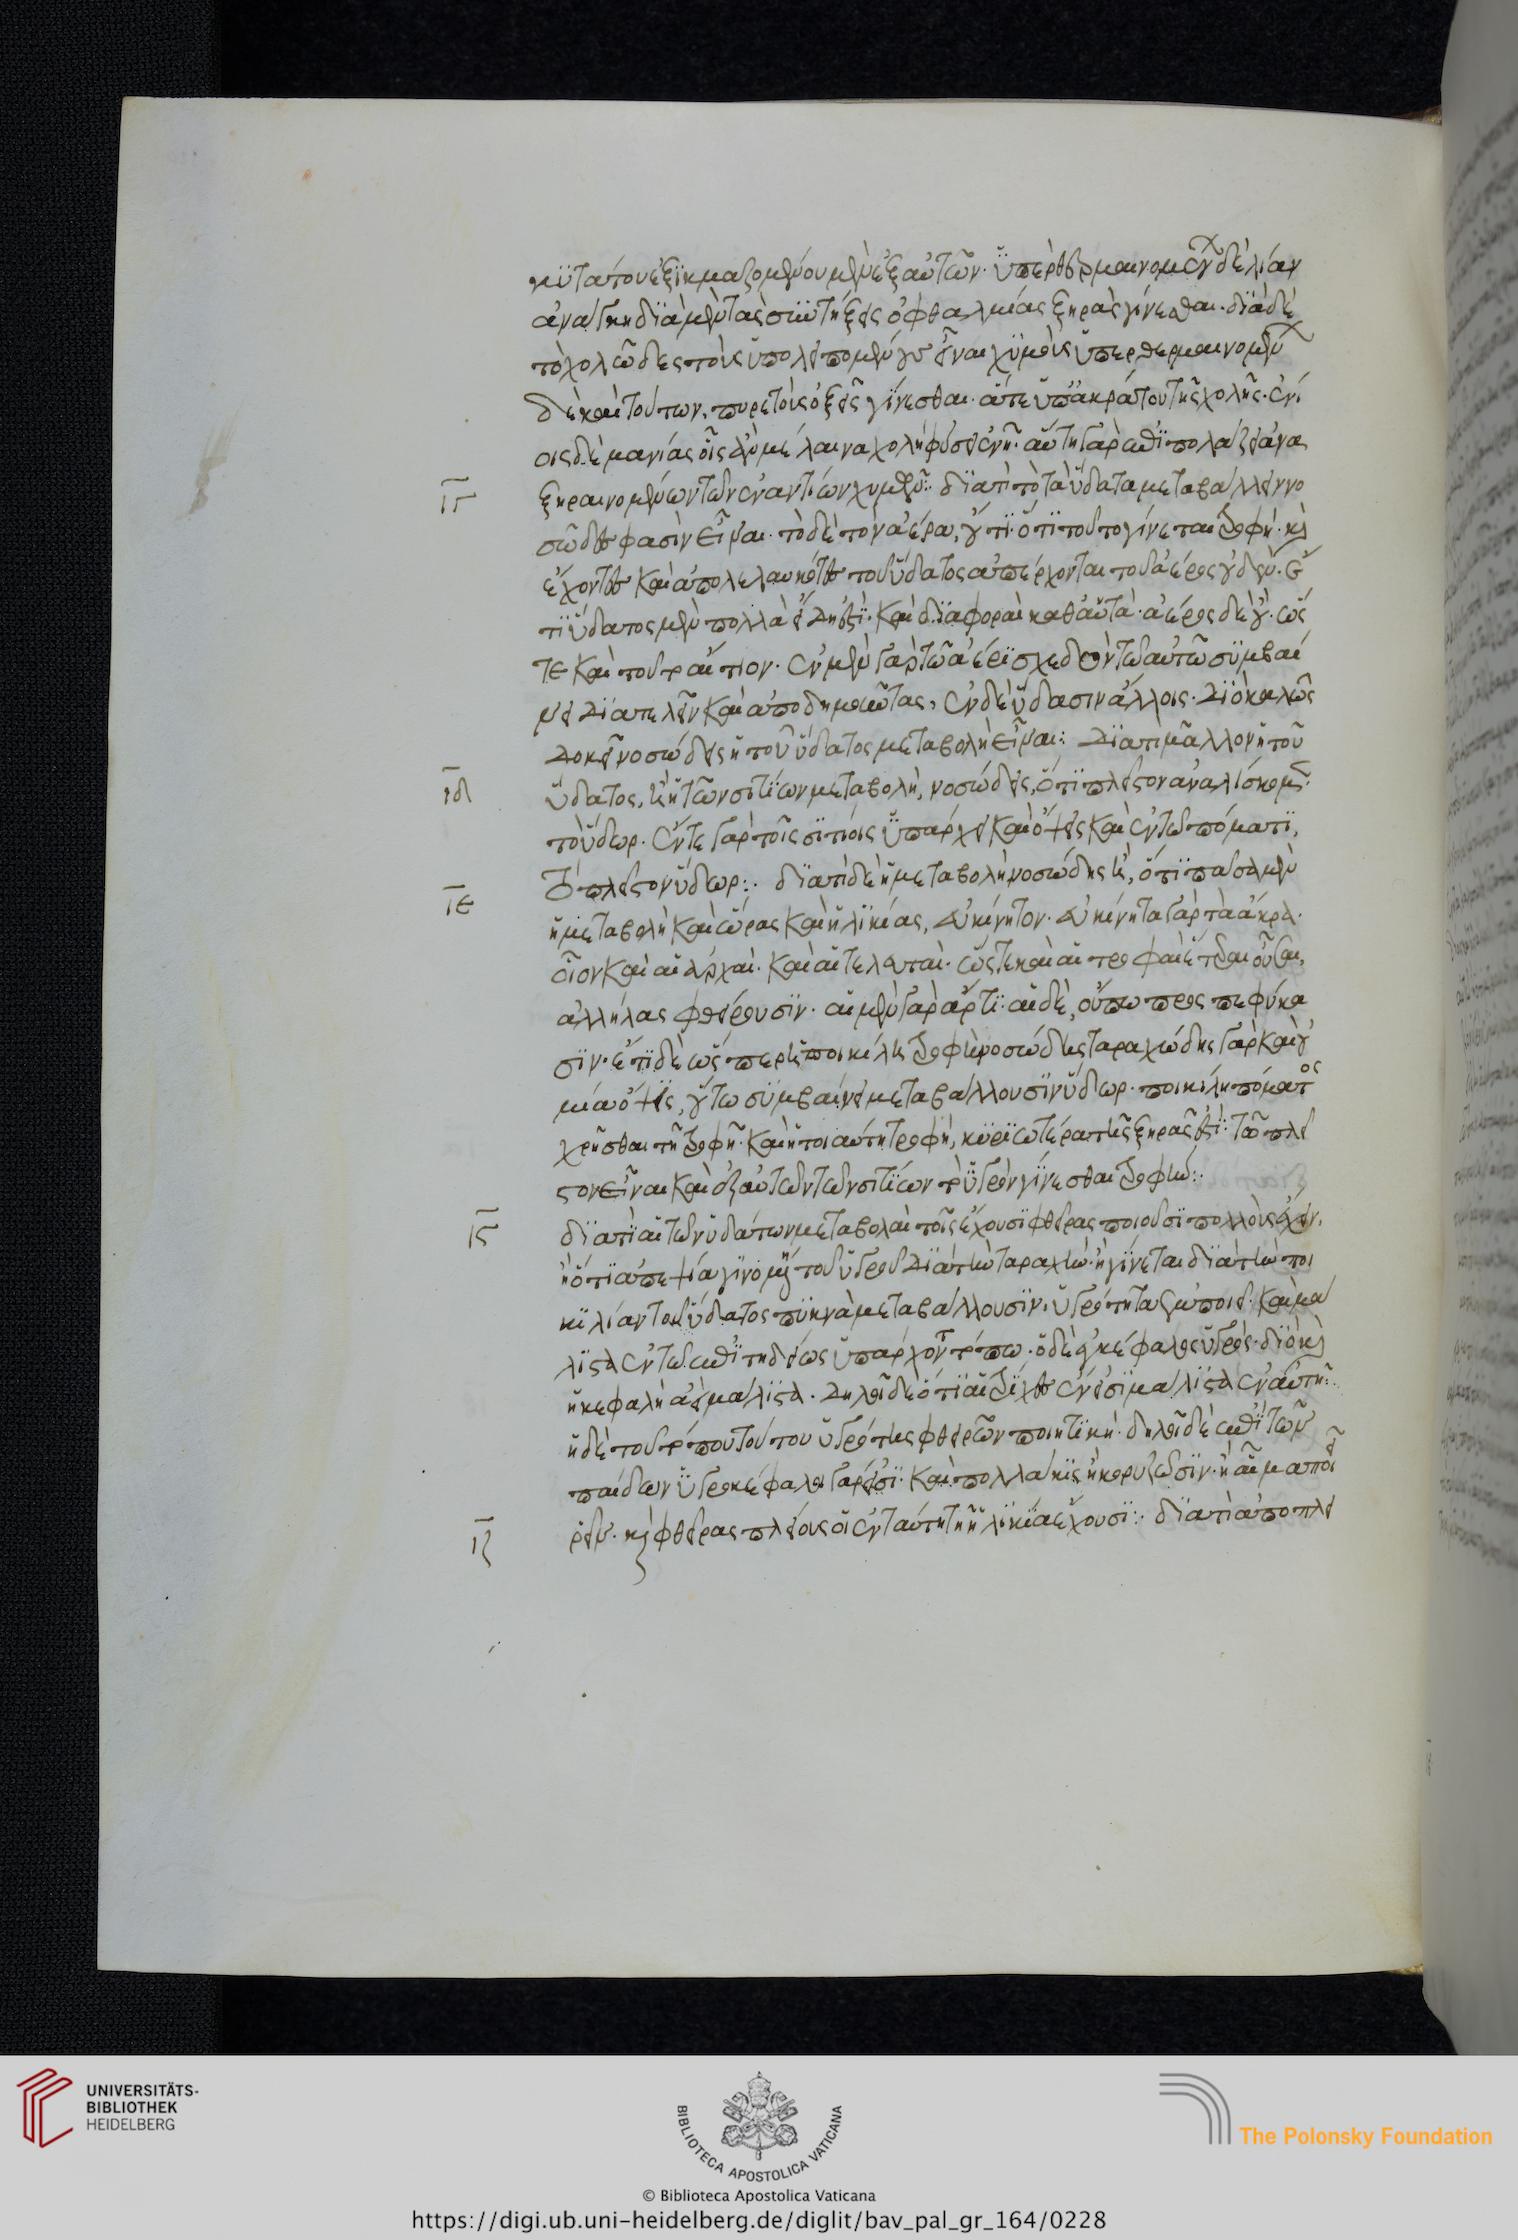 κϋτάτου ἐξϊκμαζομένου μὲν ἐξ αὐτῶν. ὑπερθερμαινομένων δὲ λίαν
ἀνάγκη διὰ μὲν τὰς συντήξεις ὀφθαλμίας ξηρὰς γίνεσθαι. διὰ δὲ
τὸ χολώδεις τοὺς ὑπολειπομένους εἶναι χυμοὺς ὑπερθερμαινομένων
δὲ καὶ τούτων, πυρετοὺς ὀξεῖς γίνεσθαι. ἅτε ὑπ' ἀκράτου τῆς χολῆς. ἐνί
οις δὲ μανίας οἷς ἂν μέλαινα χολὴ φύσει ἐνῇ. αὕτη γὰρ ἐπιπολάζει ἀνα
ιγ ξηραινομένων τῶν ἐναντίων χυμῶν: διατί τὸ τὰ ὕδατα μεταβάλλειν νο
σῶδες φασὶν εἶναι. τὸ δὲ τὸν ἀέρα, οὔ τι. ὅτι τοῦτο γίνεται τροφή. καὶ
ἔχοντες καὶ ἀπολελαυκότες τοῦ ὕδατος ἀπέρχονται τοῦ ἀέρος οὐδέν. ἔ
τι ὕδατος μὲν πολλὰ εἴδη ἐστί. καὶ διαφοραὶ καθ' αὑτά. ἀέρος δὲ οὔ. ὥς
τε καὶ τοῦτο αἴτιον. ἐν μὲν γὰρ τῷ ἀέρι σχεδὸν τῷ αὐτῷ συμβαί
νει διατελεῖν καὶ ἀποδημοῦντας, ἐν δὲ ὕδασιν ἄλλοις. διὸ καλῶς
δοκεῖ νοσώδης ἡ τοῦ ὕδατος μεταβολὴ εἶναι: διατί μᾶλλον ἡ τοῦ
ιδ ὕδατος, ἢ ἡ τῶν σιτίων μεταβολὴ, νοσώδης, ὅτι πλεῖστον ἀναλίσκομεν
τὸ ὕδωρ. ἔν τε γὰρ τοῖς σιτίοις ὑπάρχει καὶ ὄψεις καὶ ἐν τῷ πόματι,
τὸ πλεῖστον ὕδωρ: διατί δὲ ἡ μεταβολὴ νοσώδης ἢ, ὅτι πᾶσα μὲν
ιε ἡ μεταβολὴ καὶ ὥρας καὶ ἡλικίας, εὐκίνητον. εὐκίνητα γὰρ τὰ ἄκρα.
οἷον καὶ αἱ ἀρχαὶ. καὶ αἱ τελευταί. ὥςτε καὶ αἱ τροφαὶ ἕτεραι οὖσαι,
ἀλλήλας φθείρουσιν. αἱ μὲν γὰρ ἄρτι. αἱ δὲ, οὔπω προς πεφύκα
σιν. ἔτι δὲ ὥσπερ ἡ ποικίλη τροφὴ νοσώδης ταραχώδης γὰρ καὶ οὐ
μία ὄψις, οὕτω συμβαίνει μεταβάλλουσιν ὕδωρ. ποικίλῃ πόματος
χρῆσθαι τῇ τροφῇ. καὶ ἡ τοιαύτη τροφή, κυριωτέρα τῆς ξηρᾶς ἐστί. τῷ πλεῖ
στον εἶναι καὶ ἐξ αὐτῶν τῶν σιτίων τὸ ὑγρὸν γίνεσθαι τροφήν:
ις διατί αἱ τῶν ὑδάτων μεταβολαὶ τοῖς ἔχουσι φθεῖρας ποιοῦσι πολλοὺς ἔχειν.
ἢ ὅτι ἀπεψία γινομένη τοῦ ὑγροῦ διὰ τὴν ταραχὴν. ἢ γίνεται διὰ τὴν ποι
κιλίαν τοῦ ὕδατος πυκνὰ μεταβάλλουσιν. ὑγρότητα ἐμποιεῖ. καὶ μά
λιστα ἐν τῷ ἐπιτηδείως ὑπάρχοντι τόπω. ὁ δὲ ἐγκέφαλος ὑγρός. διὸ καὶ
ἡ κεφαλὴ ἀεὶ μάλιστα. δηλοῖ δὲ ὅτι αἱ τρίχες ἔνεισι μάλιστα ἐν αὐτῇ:
ἡ δὲ τοῦ τόπου τούτου ὑγρότης φθειρῶν ποιητική. δηλοῖ δὲ ἐπὶ τῶν
παίδων ὑγροκέφαλοι γάρ εἰσι. καὶ πολλάκις ἢ κορυζῶσιν. ἢ αἷμα ποιεῖ
ιζ ῥεῖν. καὶ φθεῖρας πλείους οἱ ἐν ταύτῃ τῇ ἡλικίᾳ ἔχουσι: διατί ἀπὸ πλει
UNIVERSITÄTS-
BIBLIOTHEK
HEIDELBERG
BIBLIOTECA APOSTOLICA VATICANA
The Polonsky Foundation
© Biblioteca Apostolica Vaticana
https://digi.ub.uni-heidelberg.de/diglit/bav_pal_gr_164/0228